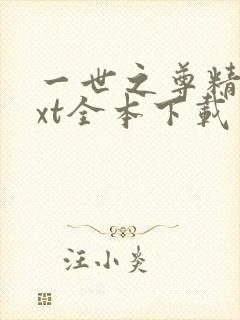 一世之尊精
xt全本下载
汪小炎